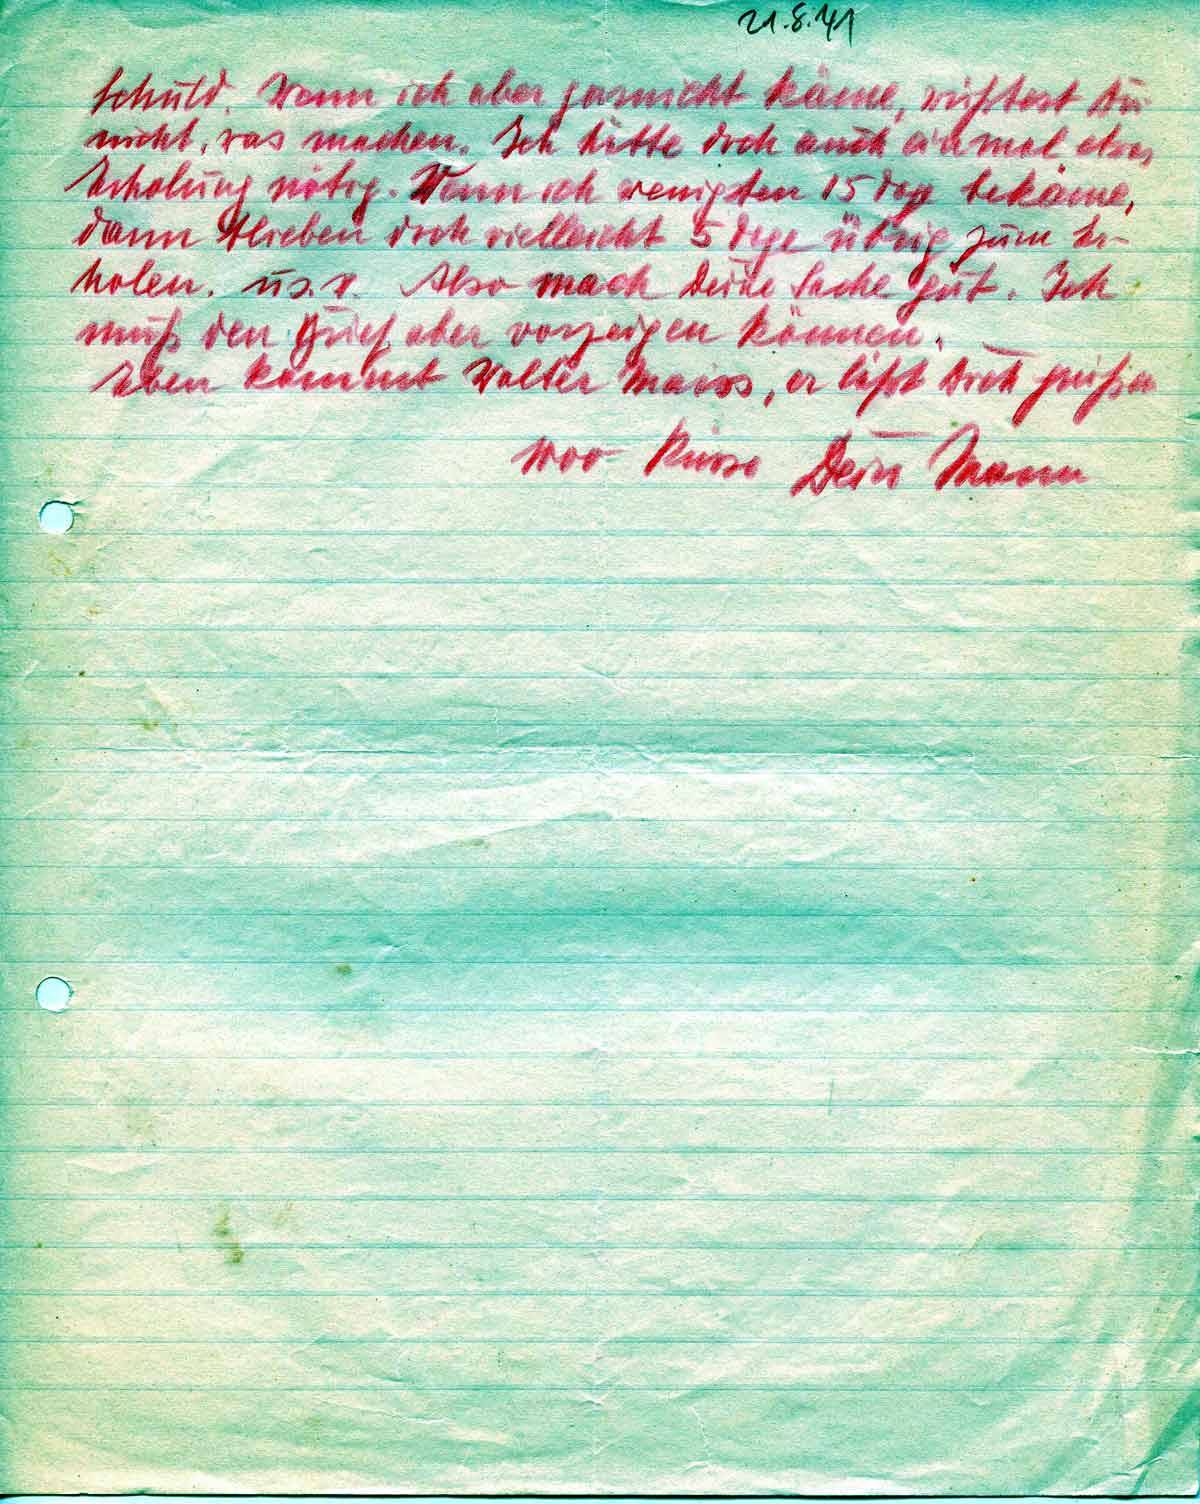 21.8.41
Schuld. Wenn ich aber garnicht käme, wüßtest Du
nicht, was machen. Ich hätte doch auch einmal etwas
Erholung nötig. Wenn ich wenigsten 15 Tage bekäme,
dann blieben doch vielleicht 5 Tage übrig zum Er-
holen. u.s.w. Also mach Deine Sache gut. Ich
muß den Brief aber vorzeigen können.
Eben kommt Walter Maiss, er läßt Dich grüßen
1000 Küsse Dein Mann